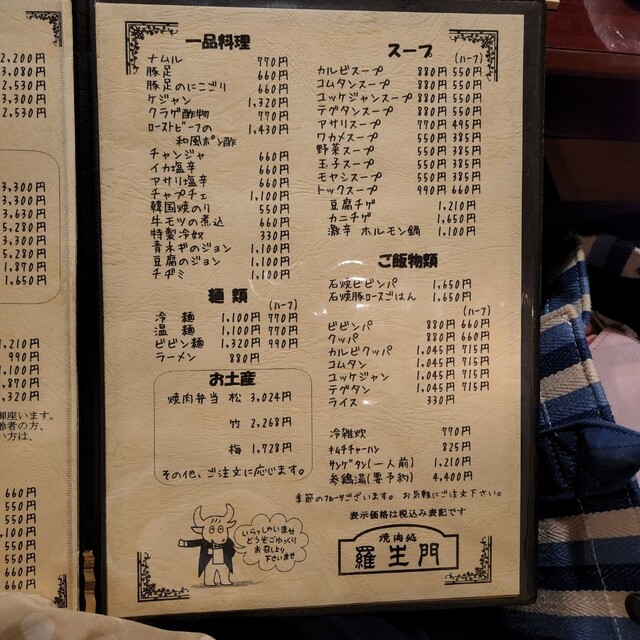 2,200円
3,080円
2,530円
3,300円
2,530円
3,300円
3,300円
3,630円
5,280円
3,300円
5,280円
1,870円
1,650円
1,210円
990円
1,100円
1,870円
1,320円
御座います。
齢者の方、
い方は、
660円
550円
550円
100円
550円
550円
660円
一品料理
ナムル 770円
豚足 660円
豚足のにこごり 660円
ケジャン 1,320円
クラゲ酢物 770円
ローストビーフの 1,430円
和風ポン酢
チャンジャ 660円
イカ塩辛 660円
アサリ塩辛 660円
チャプチェ 1,100円
韓国焼のり 550円
牛モツの煮込 660円
特製冷奴 330円
青ネギのジョン 1,100円
豆腐のジョン 1,100円
チヂミ 1,100円
麺類
(ハーフ)
冷麺 1,100円 770円
温麺 1,100円 770円
ビビン麺 1,320円 990円
ラーメン 880円
お土産
焼肉弁当 松 3,024円
竹 2,268円
梅 1,728円
その他、ご注文に応じます。
いらっしゃいませ
どうぞごゆっくり
お召し上り
下さいませ
スープ
(ハーフ)
カルビスープ 880円 550円
コムタンスープ 880円 550円
ユッケジャンスープ 880円 550円
テグタンスープ 880円 550円
アサリスープ 770円 495円
ワカメスープ 550円 385円
野菜スープ 550円 385円
玉子スープ 550円 385円
モヤシスープ 550円 385円
トックスープ 990円 660円
豆腐チゲ 1,210円
カニチゲ 1,650円
激辛 ホルモン鍋 1,100円
ご飯物類
石焼ビビンバ 1,650円
石焼豚ロースごはん 1,650円
(ハーフ)
ビビンバ 880円 660円
クッパ 880円 660円
カルビクッパ 1,045円 715円
コムタン 1,045円 715円
ユッケジャン 1,045円 715円
テグタン 1,045円 715円
ライス 330円
冷雑炊 770円
キムチチャーハン 825円
サンゲタン(一人前) 1,210円
参鶏湯(要予約) 4,400円
季節のフルーツございます。 お気軽にご注文下さい。
表示価格は税込み表記です
焼肉処
羅生門